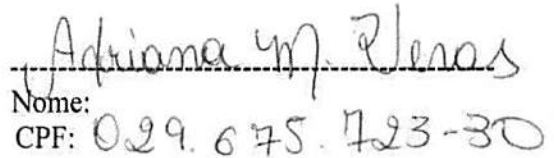 Adriana M. Veras
Nome:
CPF: 029.675.723-30